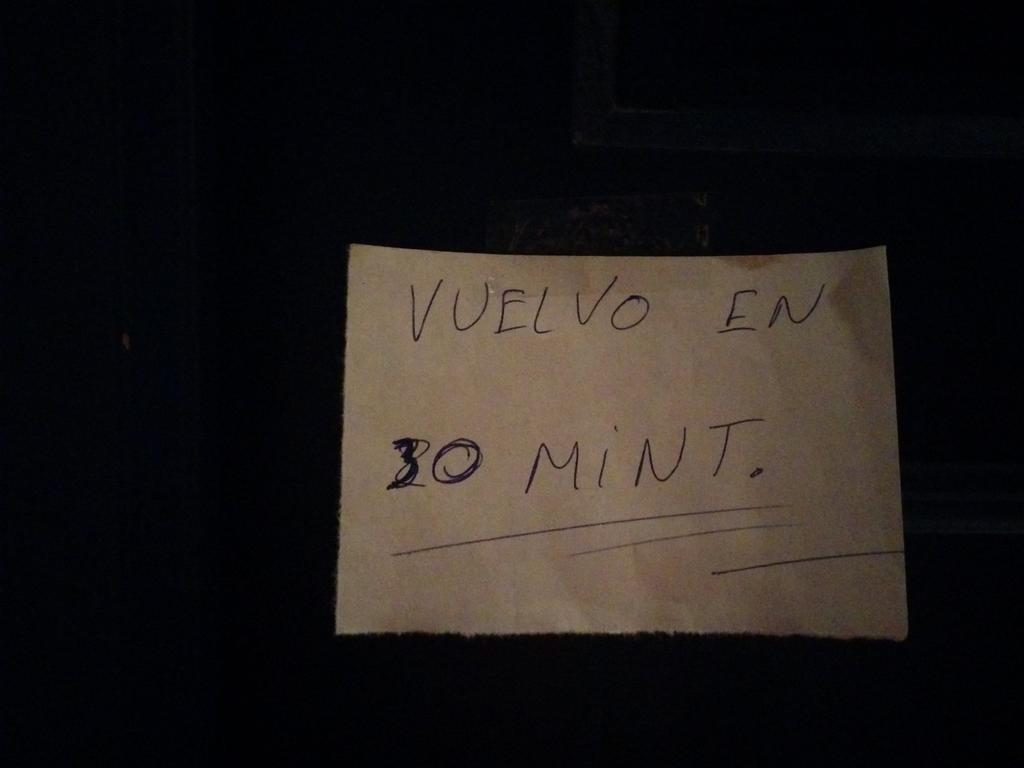 VUELVO EN
30 MiNT.